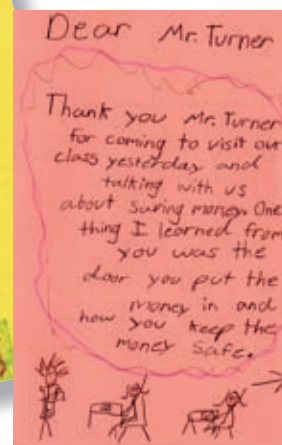 Dear Mr. Turner
Thank you Mr. Turner
for coming to visit our
class yesterday and
talking with us
about saving money. One
thing I learned from
you was the
door you put the
money in and
how you keep the
money safe.